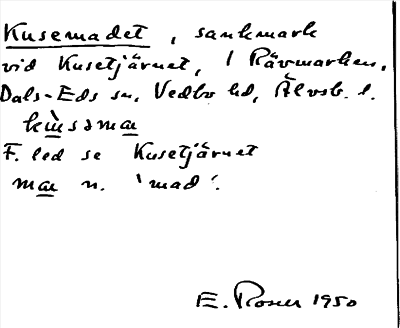 Kusemadet, sankmark
vid Kusetjärnet, / Rävmarken,
Dals-Eds sn, Vedbo hd, Älvsb. l.
kùsəmaɛ
F. led se Kusetjärnet
maɛ n. 'mad'.
E. Rosén 1950